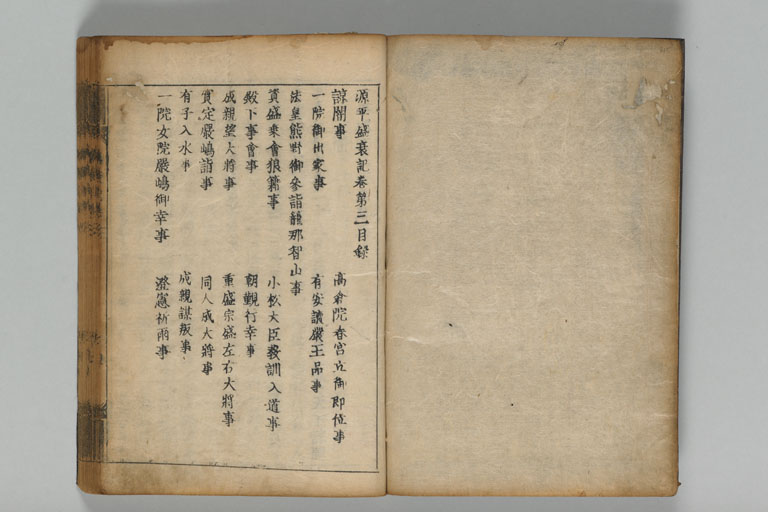 源平盛衰記巻第三目録
諒闇事　高倉院春宮立御即位事
一院御出家事　有安讀嚴王品事
法皇熊野御參詣籠那智山事
資盛乘會狼籍事　小松大臣教訓入道事
殿下事會事　朝覲行幸事
成親望大將事　重盛宗盛左右大將事
實定嚴嶋詣事　同人成大將事
有子入水事　成親謀叛事
一院女院嚴嶋御幸事　澄憲祈雨事